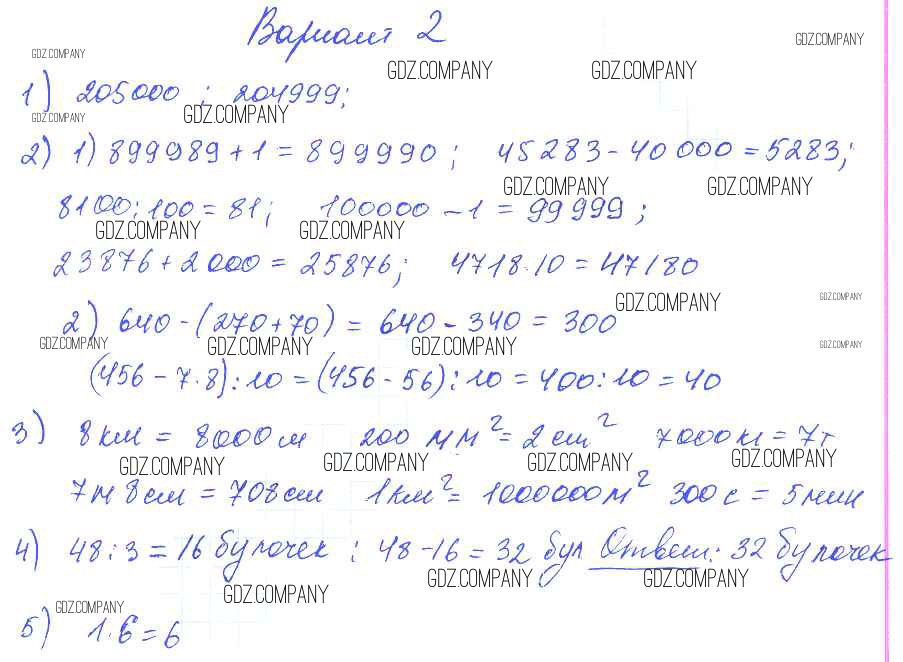 Вариант 2
GDZ.COMPANY
GDZ.COMPANY
GDZ.COMPANY GDZ.COMPANY
1) 205000 ; 204999;
GDZ.COMPANY GDZ.COMPANY
2) 1) 899989 + 1 = 899990 ; 45283 - 40000 = 5283;
GDZ.COMPANY GDZ.COMPANY
8100 : 100 = 81; 100000 - 1 = 99999 ;
GDZ.COMPANY GDZ.COMPANY
23876 + 2000 = 25876; 4718 · 10 = 47180
GDZ.COMPANY GDZ.COMPANY
2) 640 - (270 + 70) = 640 - 340 = 300
GDZ.COMPANY GDZ.COMPANY GDZ.COMPANY GDZ.COMPANY
(456 - 7 · 8) : 10 = (456 - 56) : 10 = 400 : 10 = 40
3) 8 км = 8000 м 200 мм² = 2 см² 7000 кг = 7т
GDZ.COMPANY GDZ.COMPANY GDZ.COMPANY GDZ.COMPANY
7м 8 см = 708 см 1 км² = 1000000 м² 300 с = 5 мин
4) 48 : 3 = 16 булочек ; 48 - 16 = 32 бул Ответ: 32 булочек
GDZ.COMPANY GDZ.COMPANY
GDZ.COMPANY GDZ.COMPANY
5) 1 · 6 = 6